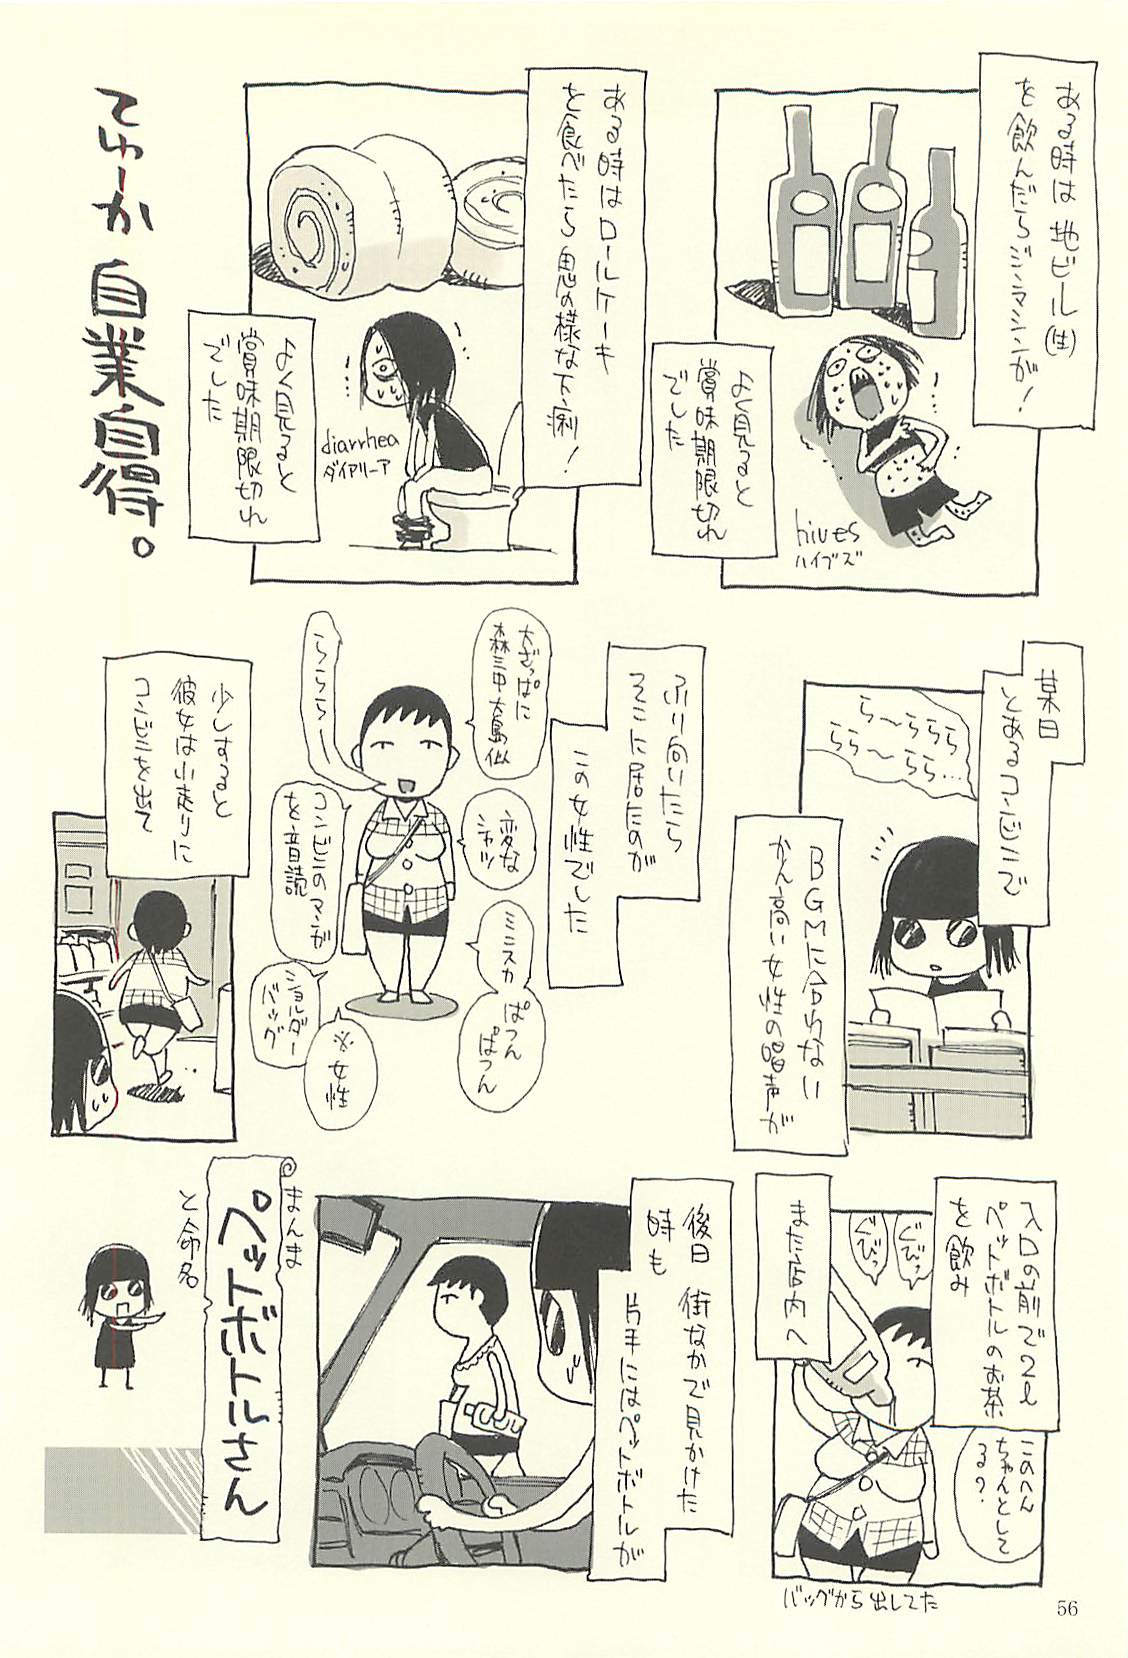 ある時は地ビール(生)
を飲んだらジンマシンが！
よく見ると
賞味期限切れ
でした
hives
ハイブズ
ある時はロールケーキ
を食べたら思の様な下痢！
よく見ると
賞味期限切れ
でした
diarrhea
ダイアリーア
てゅーか 自業自得。
某日
とあるコンビニで
ら〜ららら
らら〜らら…
BGMに合わない
かん高い女性の唱声が
ふり向いたら
そこに居たのが
この女性でした
大ざっぱに
森三中大島似
ららら
変な
シャツ
コンビニのマンガ
を音読
ミニスカ
ぱつん
ぱつん
ショルダー
バッグ
※女性
少しすると
彼女は小走りに
コンビニを出て
入口の前で2ℓ
ペットボトルのお茶
を飲み
ぐびっ
ぐびっ
このへん
ちゃんとして
る？
バッグから出してた
また店内へ
後日 街なかで見かけた
時も
片手にはペットボトルが
まんま
ペットボトルさん
と命名
56